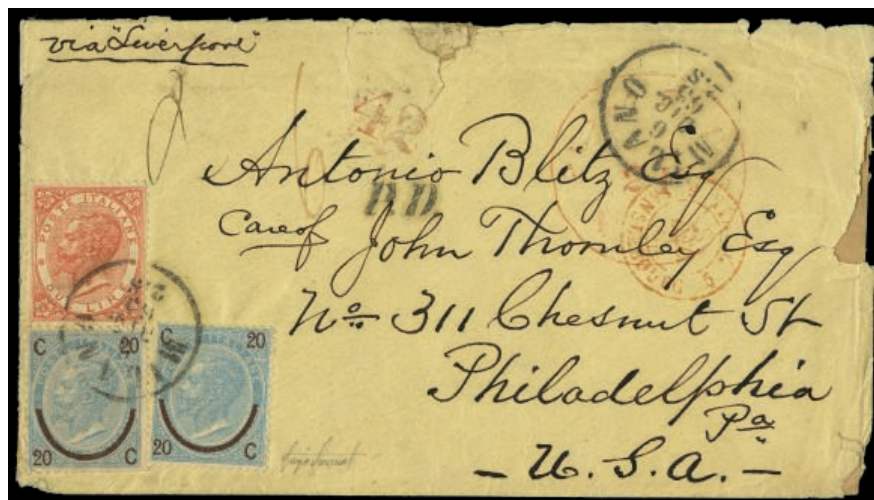 via "Liverpool"
42
PD
MILANO
Antonio Blitz Esq
Care of John Thornley Esq
No 311 Chesnut St
Philadelphia
Pa
- U. S. A. -
POSTE ITALIANE
DUE LIRE
C 20
20 C
C 20
20 C